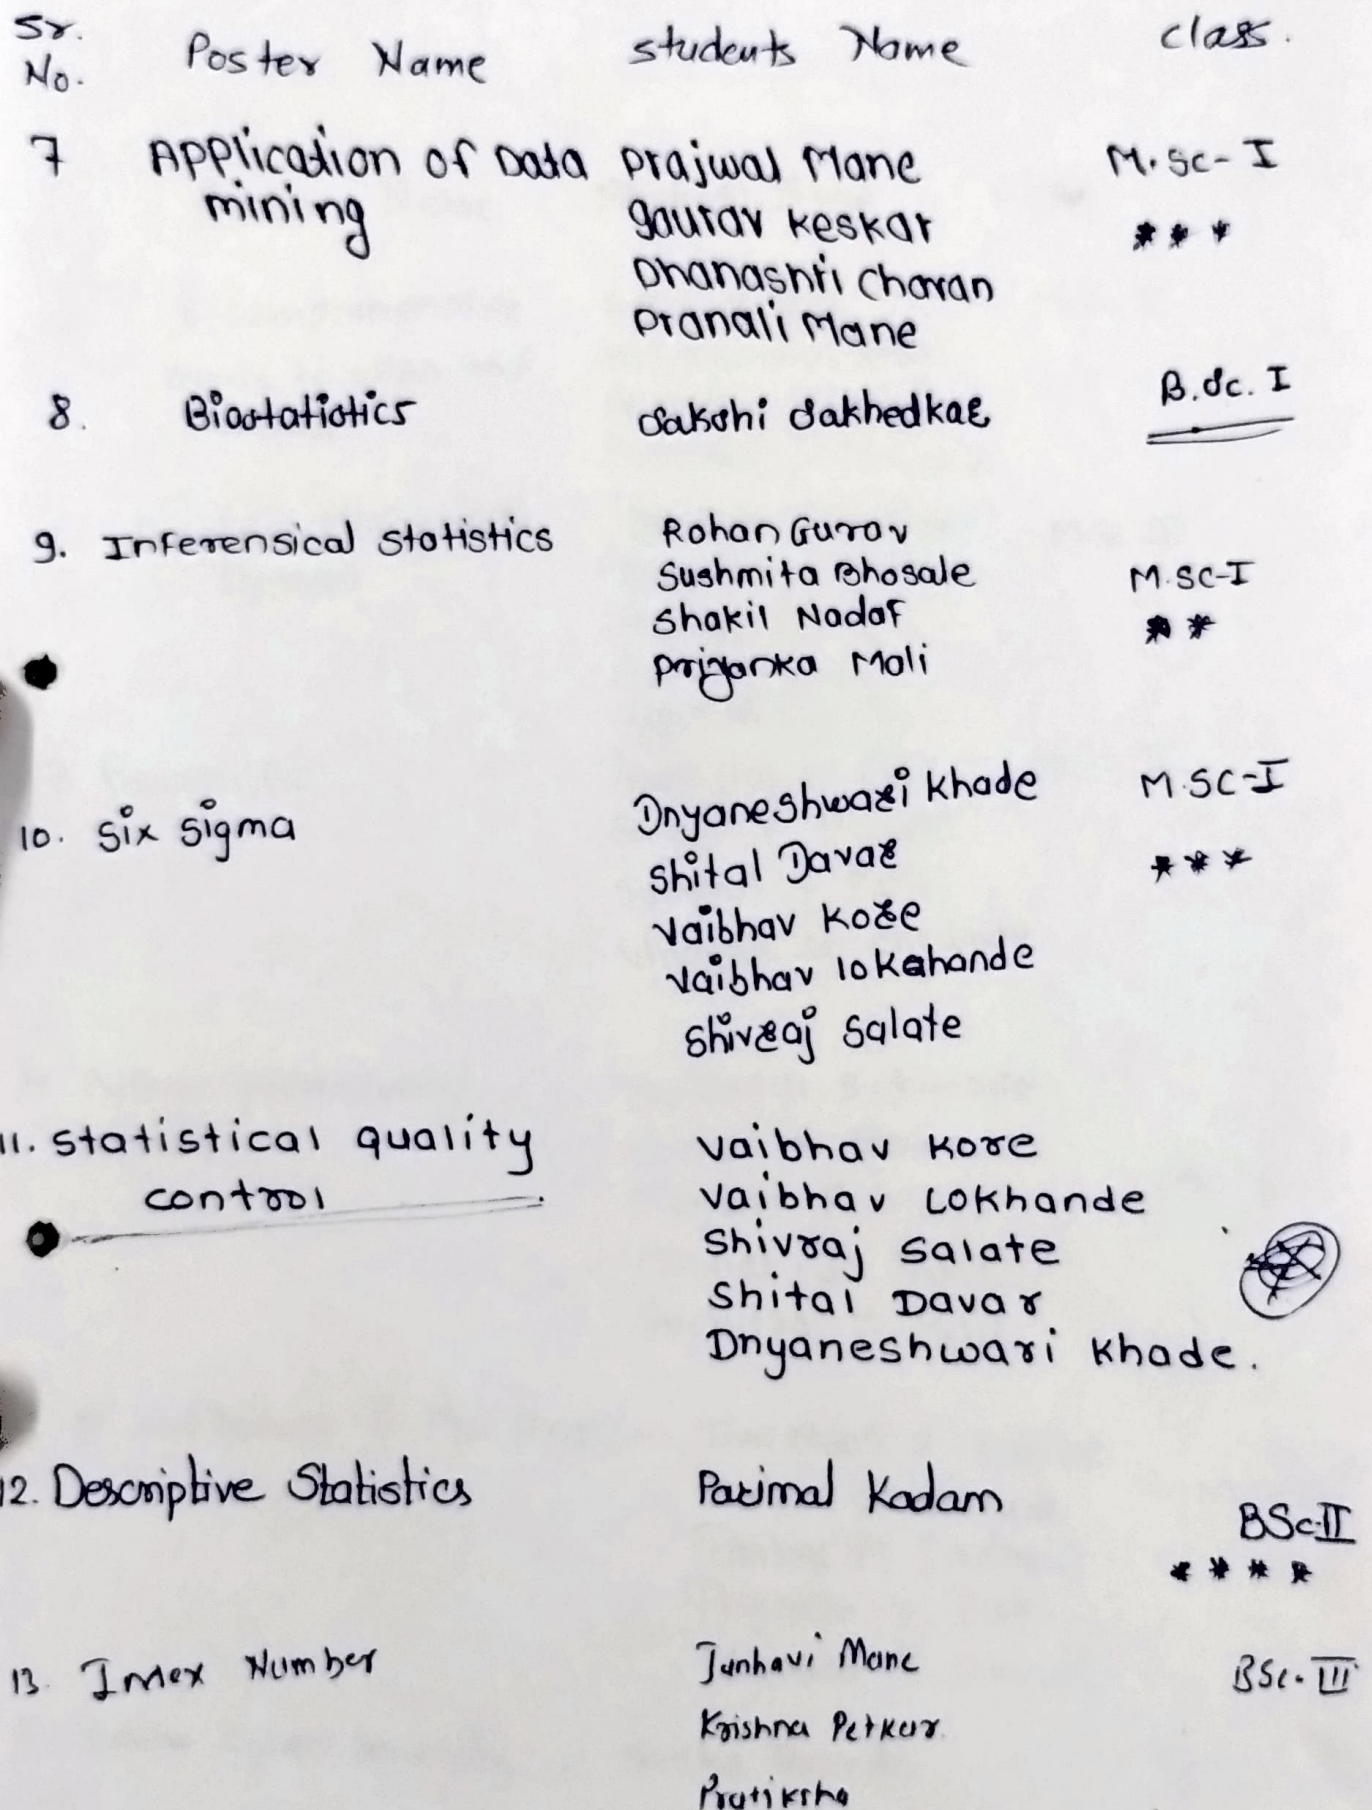 Sr. No. Poster Name students Name class.
7 Application of Data Prajwal Mane M.Sc-I
mining gaurav keskar ***
Dhanashri Chavan
Pranali Mane
8. Biostatistics Sakshi Sakhedkar B.Sc. I
9. Inferensical statistics Rohan Gurav
Sushmita Bhosale M.SC-I
Shakil Nadaf **
Priyanka Mali
10. six sigma Dnyaneshwari Khade M.SC-I
Shital Davar ***
Vaibhav Kore
Vaibhav lokahande
Shivraj Salate
11. Statistical quality Vaibhav Kore
control Vaibhav Lokhande
Shivraj Salate
Shital Davar
Dnyaneshwari Khade.
12. Descriptive Statistics Parimal Kadam BSc-II
****
13. Number Janhavi Mane BSc-III
Krishna Petkar
Pratiksha